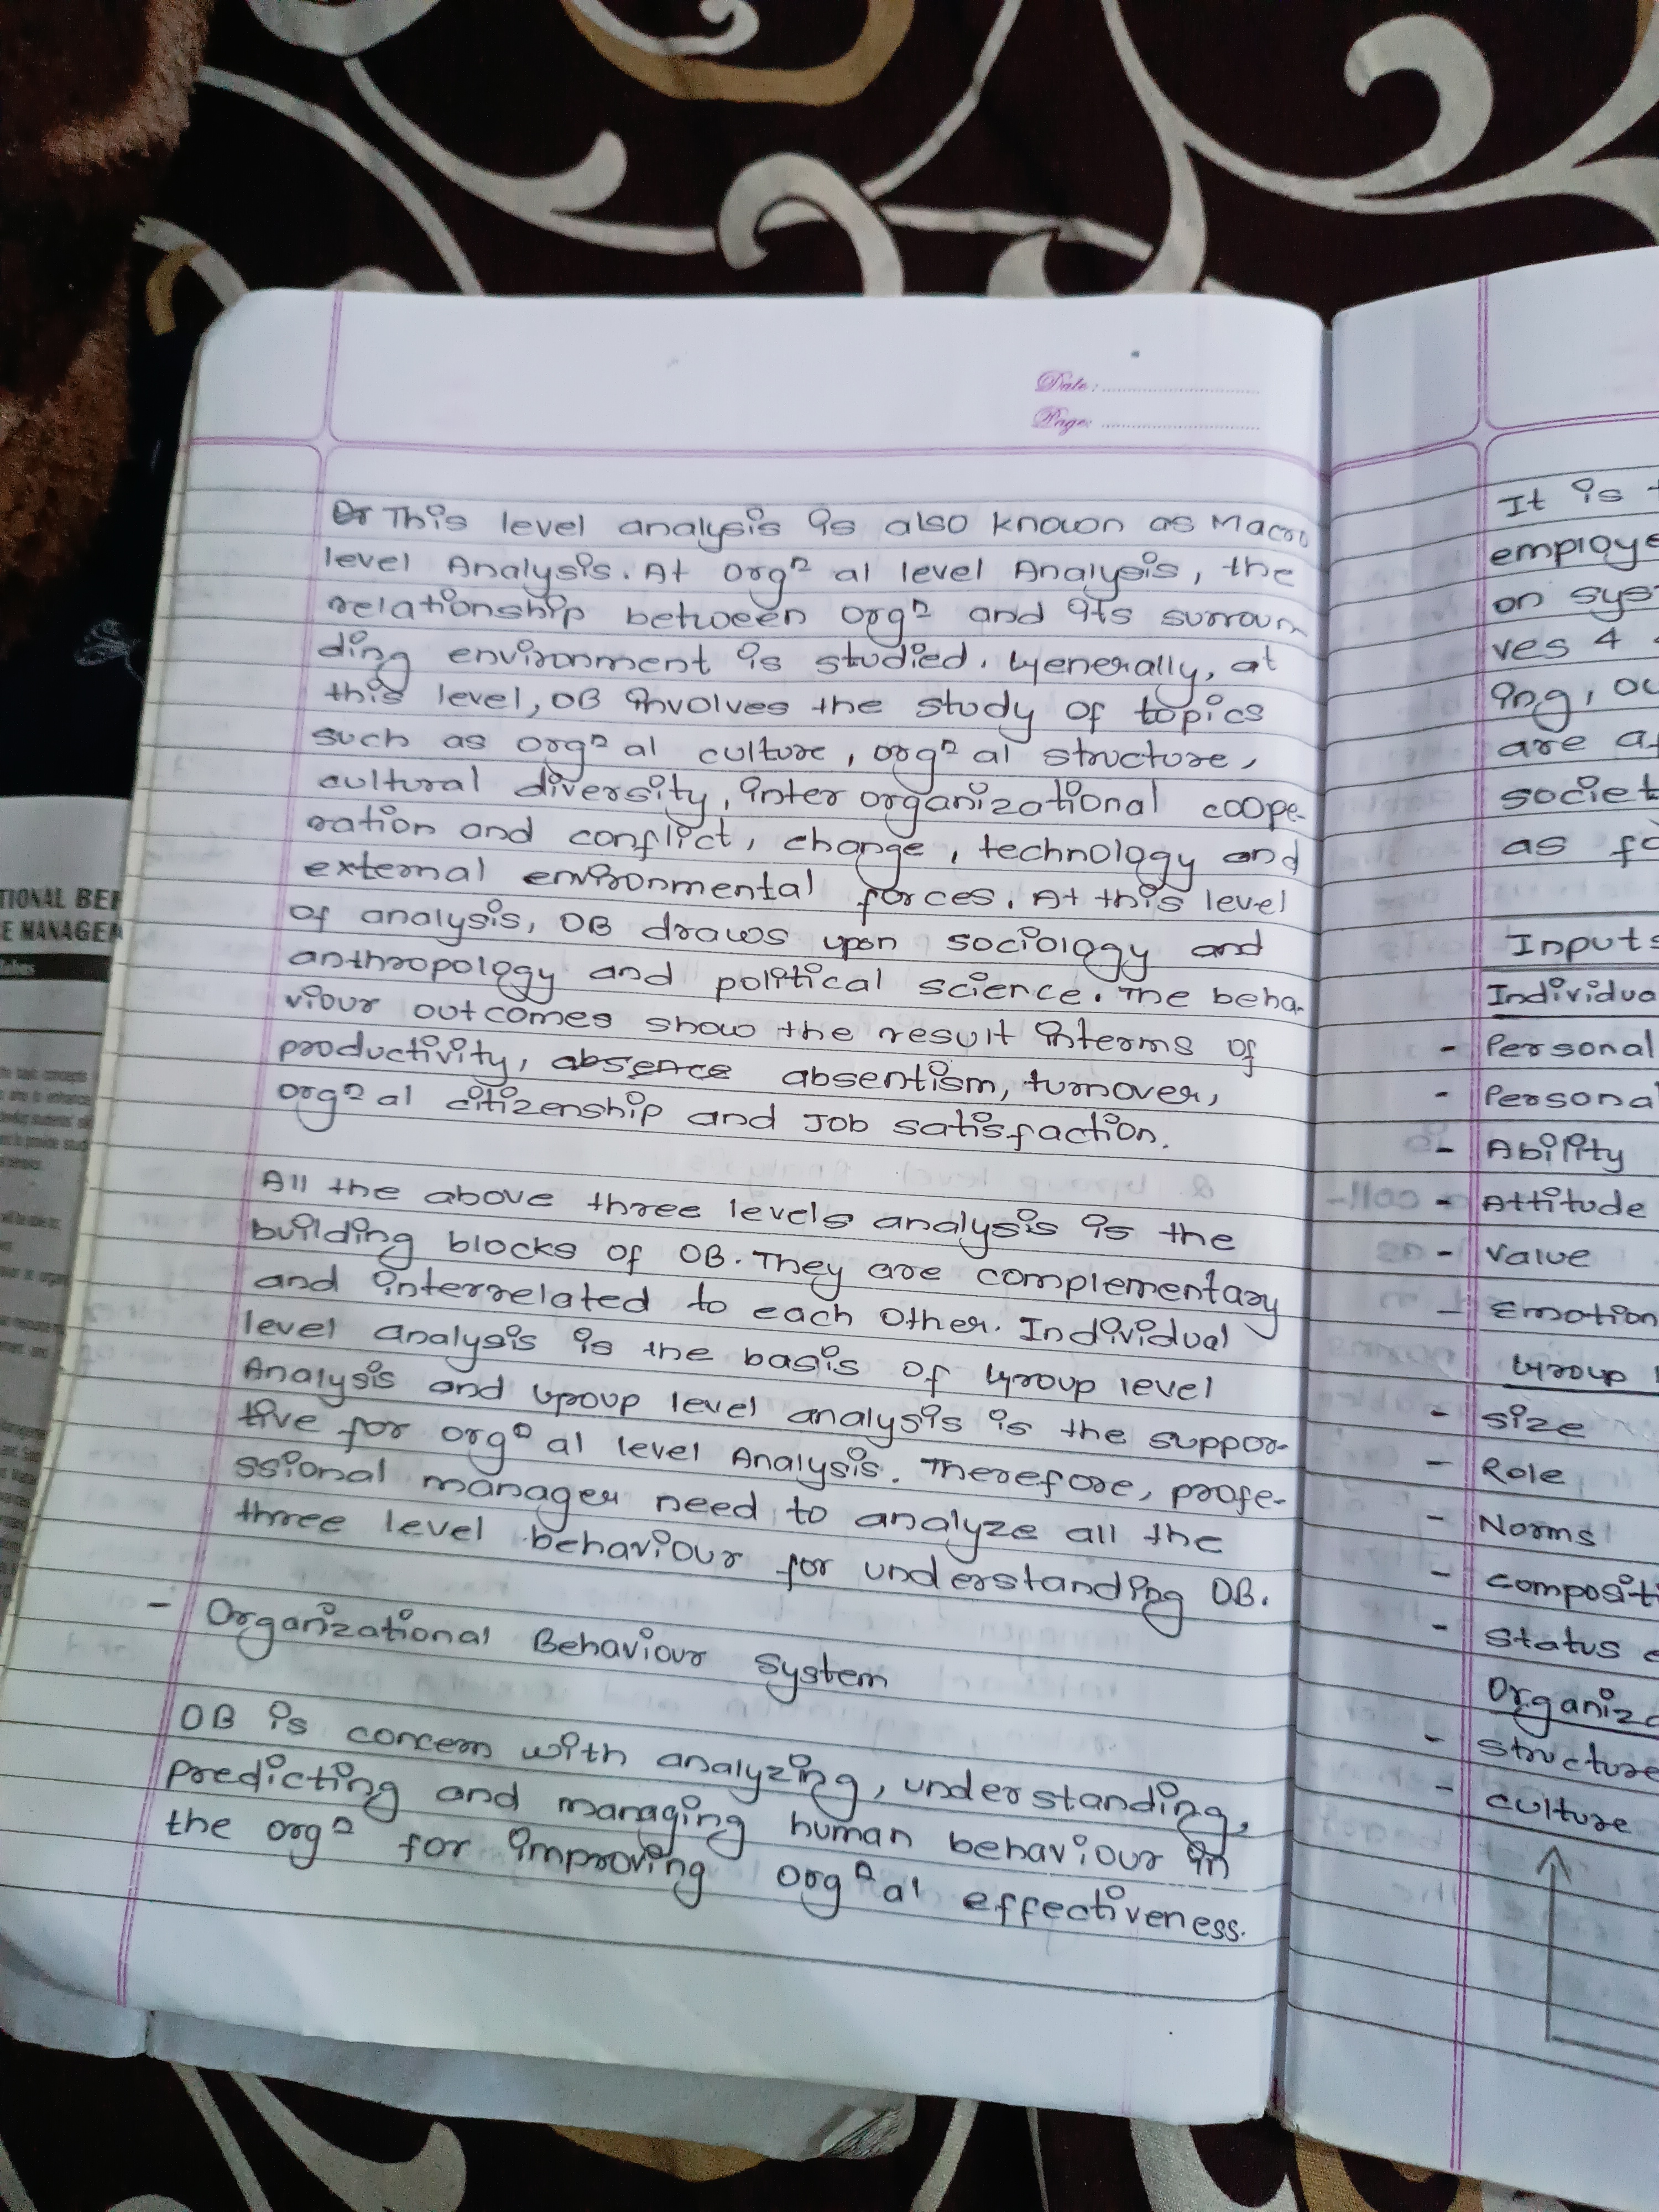 Date:
Page:
This level analysis is also known as Macro
level Analysis. At orgⁿ al level Analysis, the
relationship between orgⁿ and its surroun
ding environment is studied. Generally, at
this level, OB involves the study of topics
such as orgⁿ al culture, orgⁿ al structure,
cultural diversity, inter organizational coope-
ration and conflict, change, technology and
external environmental forces. At this level
of analysis, OB draws upon sociology and
anthropology and political science. The beha-
viour outcomes show the result interms of
productivity, absence absentism, turnover,
orgⁿ al citizenship and Job satisfaction.
All the above three levels analysis is the
building blocks of OB. They are complementary
and interrelated to each other. Individual
level analysis is the basis of Group level
Analysis and Group level analysis is the suppor-
tive for orgⁿ al level Analysis. Therefore, profe-
ssional manager need to analyze all the
three level behaviour for understanding OB.
- Organizational Behaviour System
OB is concern with analyzing, understanding,
predicting and managing human behaviour in
the orgⁿ for improving orgⁿ al effectiveness.
It is
employe
on sys
ves 4
ing, ou
are af
societ
as fo
Inputs
Individua
- Personal
- Persona
- Ability
- Attitude
- Value
- Emotion
Group
- Size
- Role
- Norms
- compositi
- Status
Organiza
- Structure
- culture
TIONAL BE
E MANAGEM